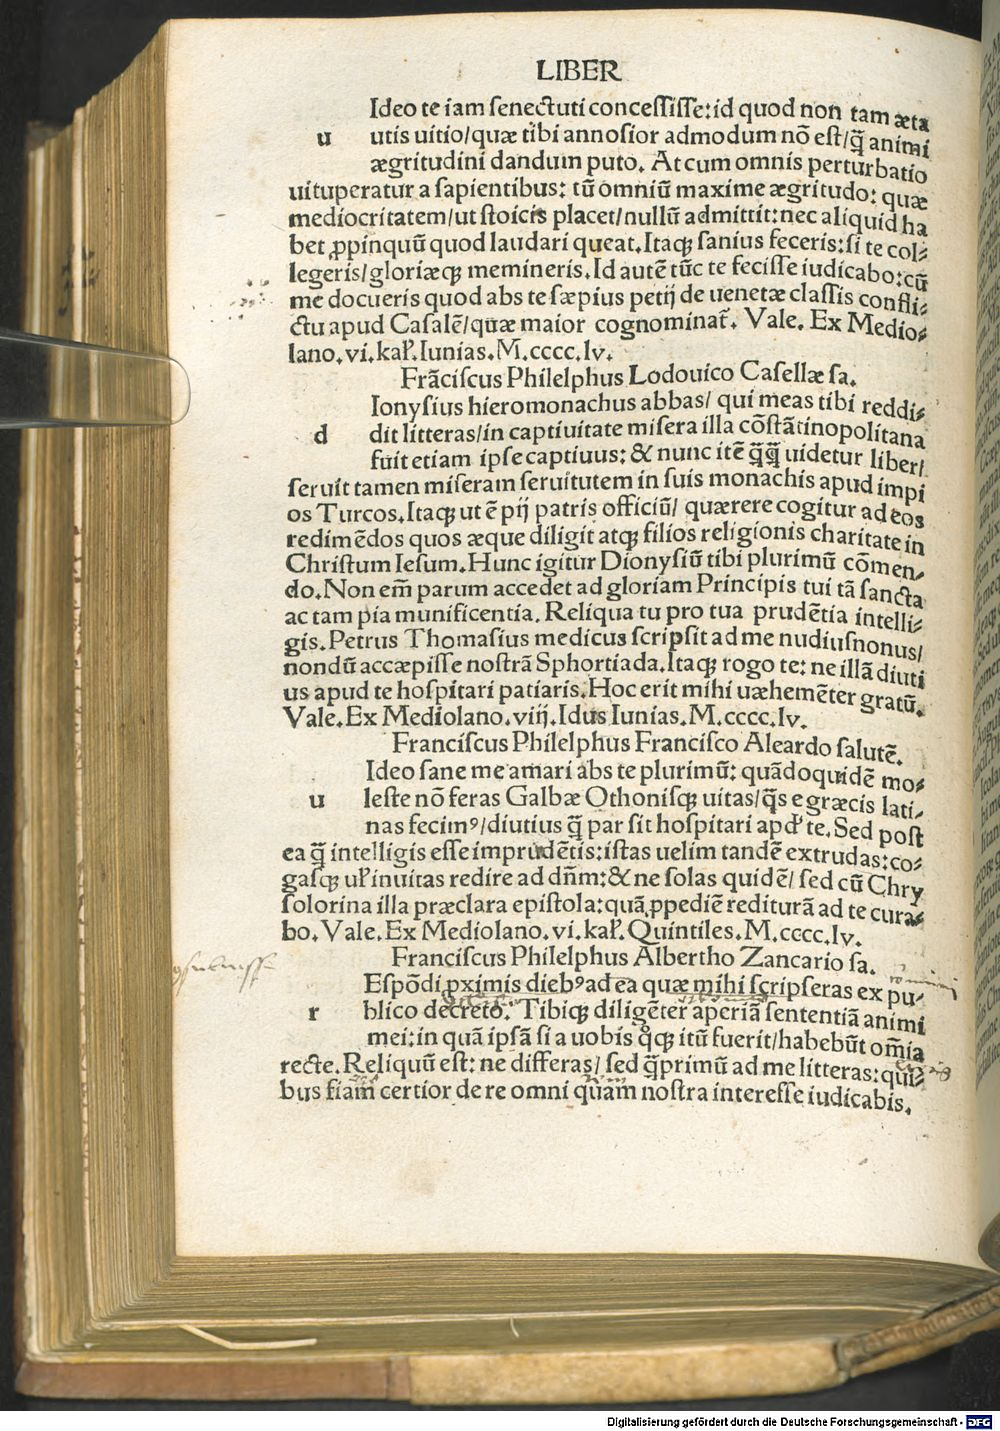 LIBER
Ideo te iam ſenectuti conceſſiſſe: id quod non tam æta
u utis uitio/quæ tibi annoſior admodum nō eſt/q̄ animi
ægritudini danduin puto. At cum omnis perturbatio
uituperatur a ſapientibus: tū omniū maxime ægritudo: quæ
mediocritatem/ut ſtoicis placet/nullū admittit: nec aliquid ha
bet ꝓpinquū quod laudari queat. Itaqꝫ ſanius feceris: ſi te col⸗
legeris/gloriæqꝫ memineris. Id autē tūc te feciſſe iudicabo: cū
me docueris quod abs te ſæpius petij de uenetæ claſſis confli⸗
ctu apud Caſalē/quæ maior cognominat̄. Vale. Ex Medio⸗
lano. vi. kaƚ. Iunias. M. cccc. lv.
Frāciſcus Philelphus Lodouico Caſellæ ſa.
Ionyſius hieromonachus abbas/ qui meas tibi reddi⸗
d dit litteras/in captiuitate miſera illa cōſtātinopolitana
fuit etiam ipſe captiuus: & nunc itē q̄q̄ uidetur liber/
ſeruit tamen miſeram ſeruitutem in ſuis monachis apud impi
os Turcos. Itaqꝫ ut ē pij patris officiū/ quærere cogitur ad eos
redimēdos quos æque diligit atqꝫ filios religionis charitate in
Chriſtum Ieſum. Hunc igitur Dionyſiū tibi plurimū cōmen⸗
do. Non em̄ parum accedet ad gloriam Principis tui tā ſancta
ac tam pia munificentia. Reliqua tu pro tua prudētia intelli⸗
gis. Petrus Thomaſius medicus ſcripſit ad me nudiuſnonus/
nondū accæpiſſe noſtrā Sphortiada. Itaqꝫ rogo te: ne illā diuti
us apud te hoſpitari patiaris. Hoc erit mihi uæhemēter gratū.
Vale. Ex Mediolano. viij. Idus Iunias. M. cccc. lv.
Franciſcus Philelphus Franciſco Aleardo ſalutē.
Ideo ſane me amari abs te plurimū: quādoquidē mo⸗
u leſte nō feras Galbæ Othoniſqꝫ uitas/q̄s e græcis lati⸗
nas fecimꝰ/diutius q̄ par ſit hoſpitari apd̕ te. Sed poſt
ea q̄ intelligis eſſe imprudētis: iſtas uelim tandē extrudas: co⸗
gaſqꝫ uƚ inuitas redire ad dn̄m: & ne ſolas quidē/ ſed cū Chry
ſolorina illa præclara epiſtola: quā ꝓpediē rediturā ad te cura⸗
bo. Vale. Ex Mediolano. vi. kaƚ. Quintiles. M. cccc. lv.
Franciſcus Philelphus Albertho Zancario ſa.
Eſpōdi ꝓximis diebꝰ ad ea quæ mihi ſcripſeras ex pu⸗
r blico decreto. Tibiqꝫ diligēter aperiā ſententiā animi
mei: in quā ipſā ſi a uobis q̊qꝫ itū fuerit/habebūt om̄ia
recte. Reliquū eſt: ne differas/ ſed q̄primū ad me litteras: qui⸗
bus fiam certior de re omni quam noſtra intereſſe iudicabis.
Digitalisierung gefördert durch die Deutsche Forschungsgemeinschaft - DFG